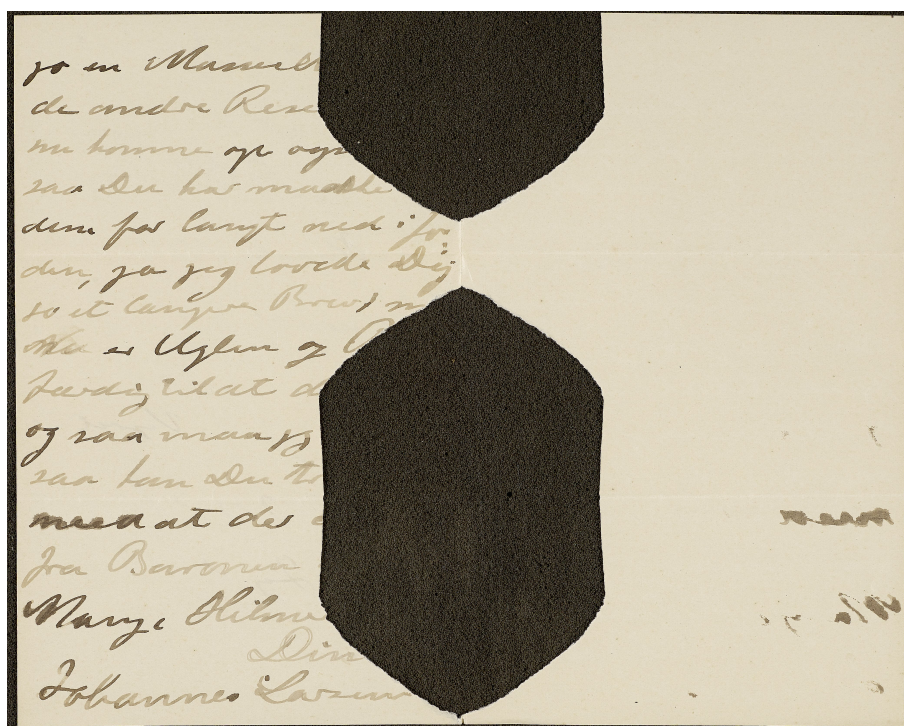 jo en
de andre
nu komme op og
saa Du har maaske
dem for langt ned i
den, ja jeg lovede Dig
jo et længere Brev,
er Uglen og
færdig til at
og saa maa jeg
saa kan Du
med at der
fra Baronen
Mange Hilsne
Din
Johannes Larsen